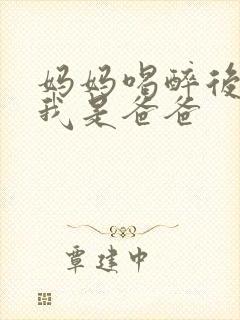 妈妈喝醉後
我是爸爸
覃建中